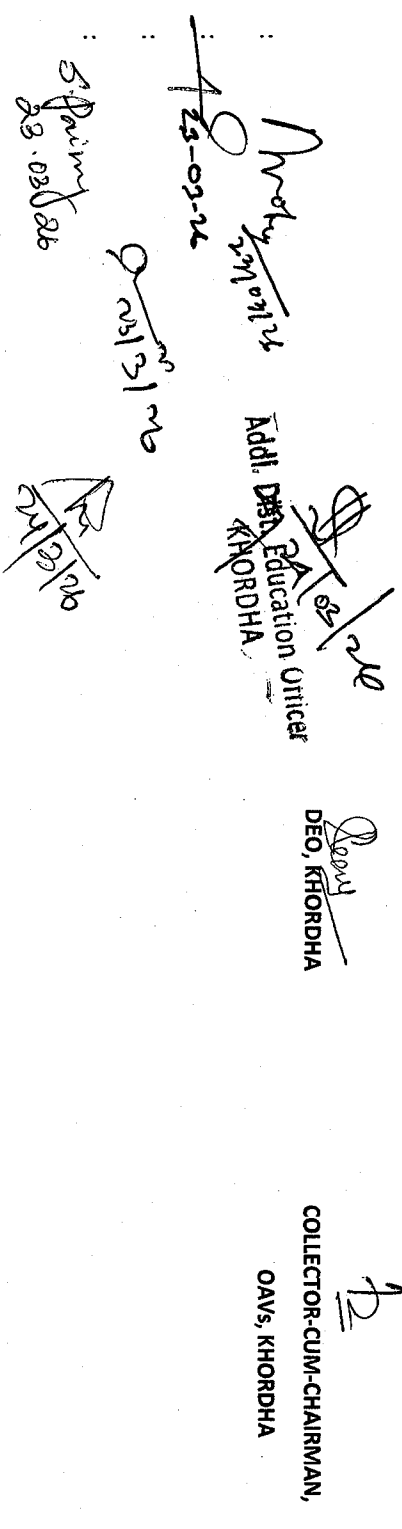 :
:
:
:
23/03/26
23-03-26
23/3/26
23.03.26
24/03/26
Addl. Dist. Education Officer
KHORDHA
24/3/26
DEO, KHORDHA
COLLECTOR-CUM-CHAIRMAN,
OAVs, KHORDHA